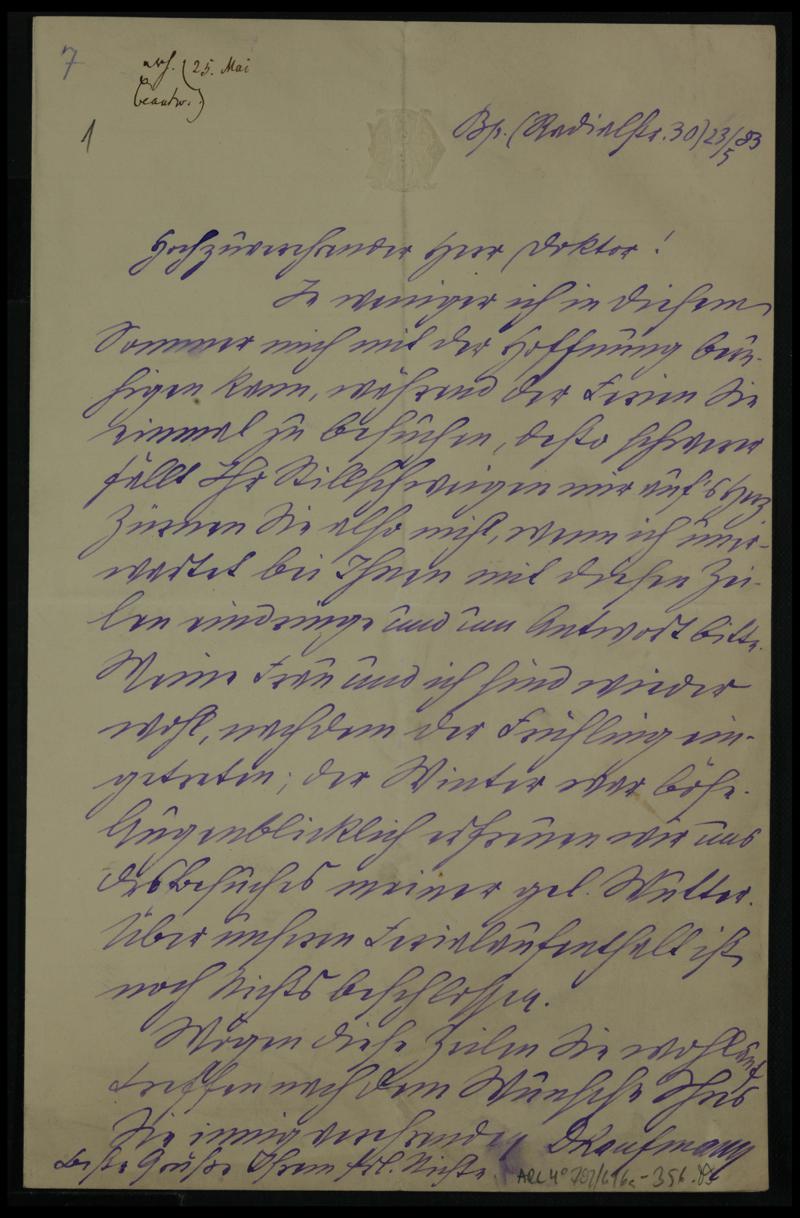 7
erh. (25. Mai
beantw.)
1
Bp. (Radialstr. 30) 23/5 83
Hochzuverehrender Herr Doktor!
Je weniger ich in diesem
Sommer mich mit der Hoffnung beru-
higen kann, während der Ferien Sie
einmal zu besuchen, desto schwerer
fällt Ihr Stillschweigen mir auf's Herz
Zürnen Sie also nicht, wenn ich uner-
wartet bei Ihnen mit diesen Zei-
len eindringe und um Antwort bitte.
Meine Frau und ich sind wieder
wohl, nachdem der Frühling ein-
getreten; der Winter war böse.
Augenblicklich erfreuen wir uns
des Besuches meiner gel. Mutter.
Über unseren Ferialaufenthalt ist
noch Nichts beschlossen.
Mögen diese Zeilen Sie wohlauf
treffen nach dem Wunsche Ihres
Sie innig verehrenden DKaufmann
Beste Grüße Ihrem Frl. Nichte.
ARC 4° 792/